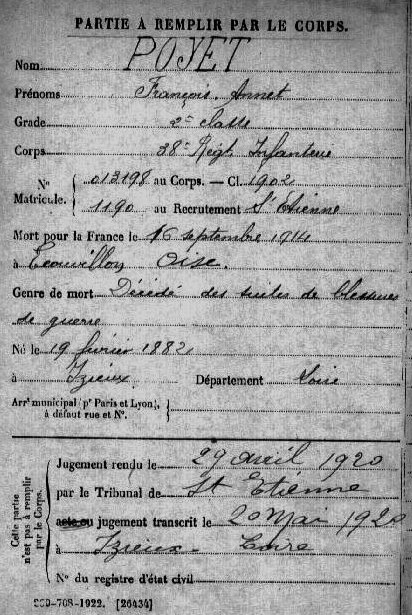 PARTIE À REMPLIR PAR LE CORPS.
Nom POYET
Prénoms François Annet
Grade 2e classe
Corps 38e Régt Infanterie
N° Matricule. 013198 au Corps. — Cl. 1902
1190 au Recrutement St Etienne
Mort pour la France le 16 septembre 1914
à Ecouvillon Oise.
Genre de mort Décédé des suites de blessures
de guerre
Né le 19 février 1882
à Izieux Département Loire
Arrt municipal (pr Paris et Lyon), à défaut rue et N°.
Cette partie n'est pas à remplir par le Corps.
Jugement rendu le 29 avril 1920
par le Tribunal de St Etienne
acte ou jugement transcrit le 20 Mai 1920
à Izieux Loire
N° du registre d'état civil
-708-1922. [26434]